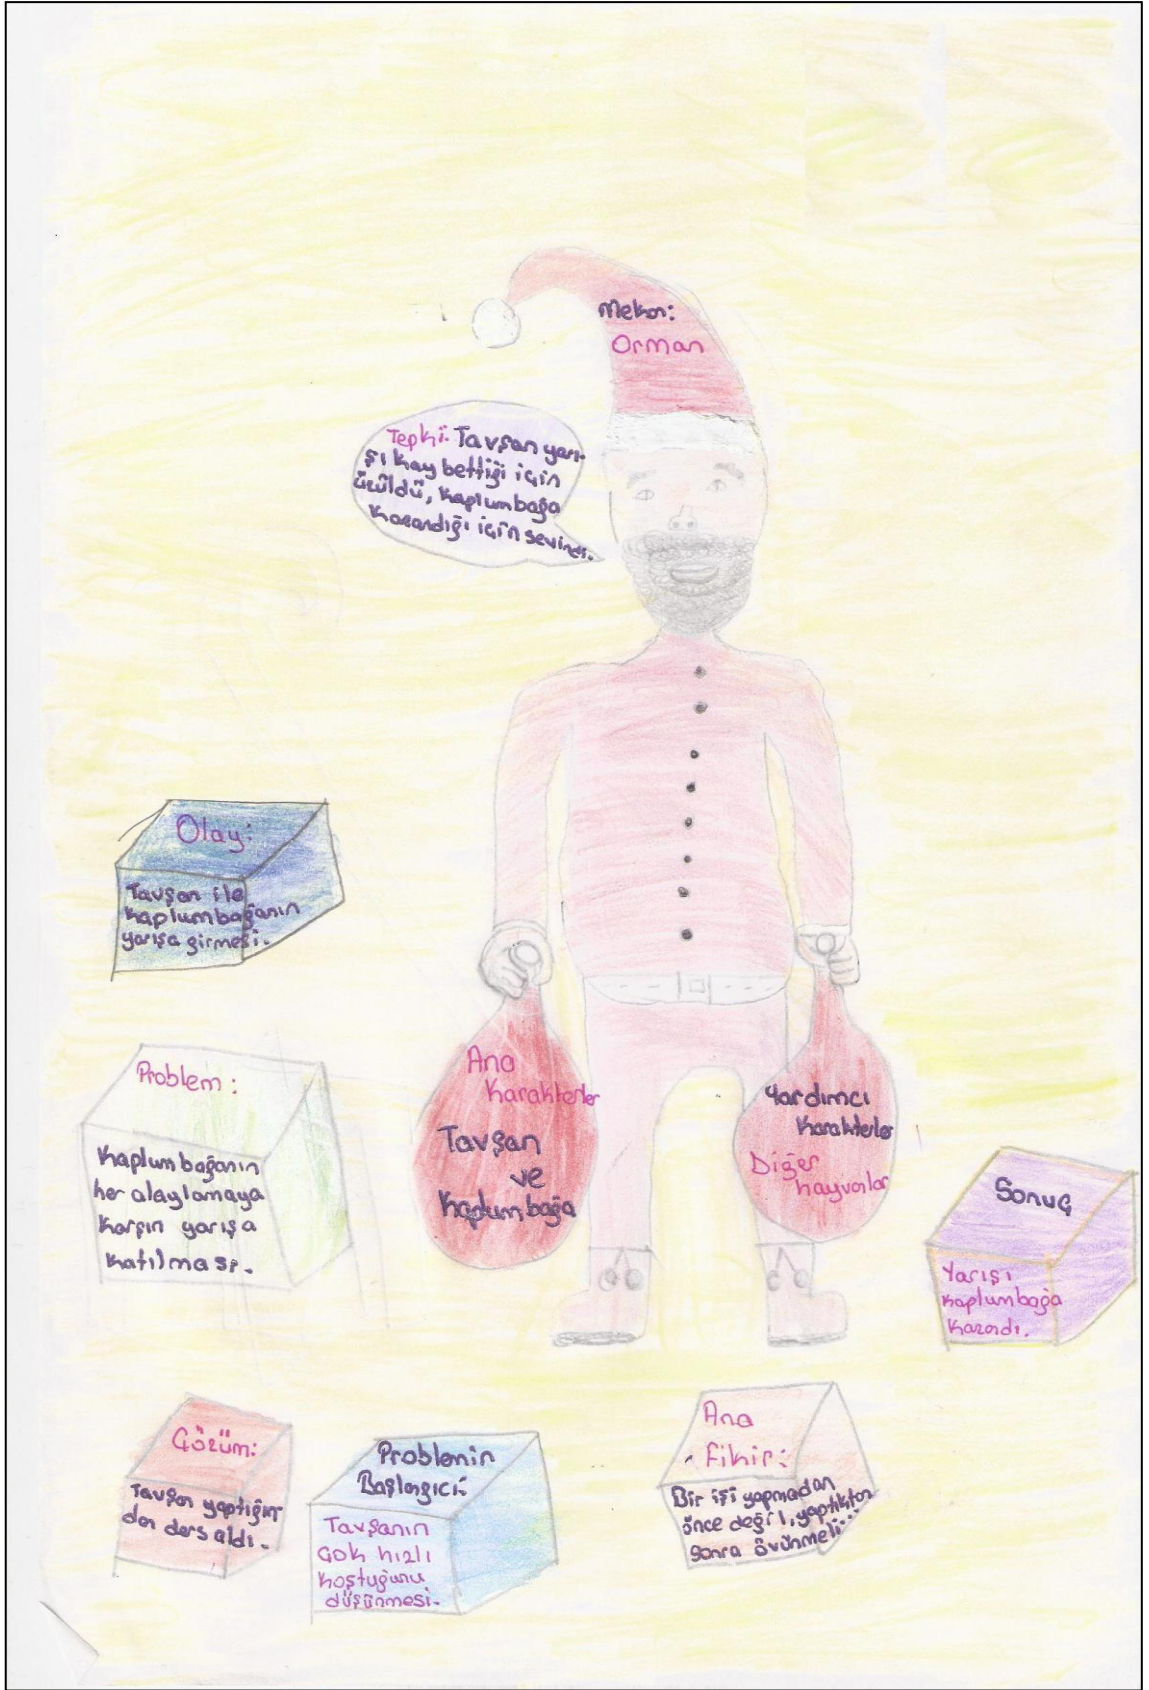 Mekan:
Orman
Tepki: Tavşan yarı-
şı kaybettiği için
üzüldü, kaplumbağa
kazandığı için sevindi.
Olay:
Tavşan ile
kaplumbağanın
yarışa girmesi.
Problem:
Kaplumbağanın
her alaylamaya
karşın yarışa
katılması.
Ana
Karakterler
Tavşan
ve
Kaplumbağa
Yardımcı
Karakterler
Diğer
hayvanlar
Sonuç
Yarışı
kaplumbağa
kazandı.
Çözüm:
Tavşan yaptığın
dan ders aldı.
Problemin
Başlangıcı:
Tavşanın
çok hızlı
koştuğunu
düşünmesi.
Ana
fikir:
Bir işi yapmadan
önce değil, yaptıktan
sonra övünmeli...